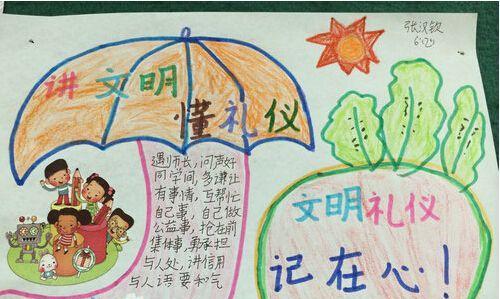 张汉钦
6.(2)
讲文明
懂礼仪
遇师长，问声好
同学间，多谦让
有事情，互帮忙
自己事，自己做
公益事，抢在前
集体事，勇承担
与人处，讲信用
与人语要和气
文明礼仪
记在心！